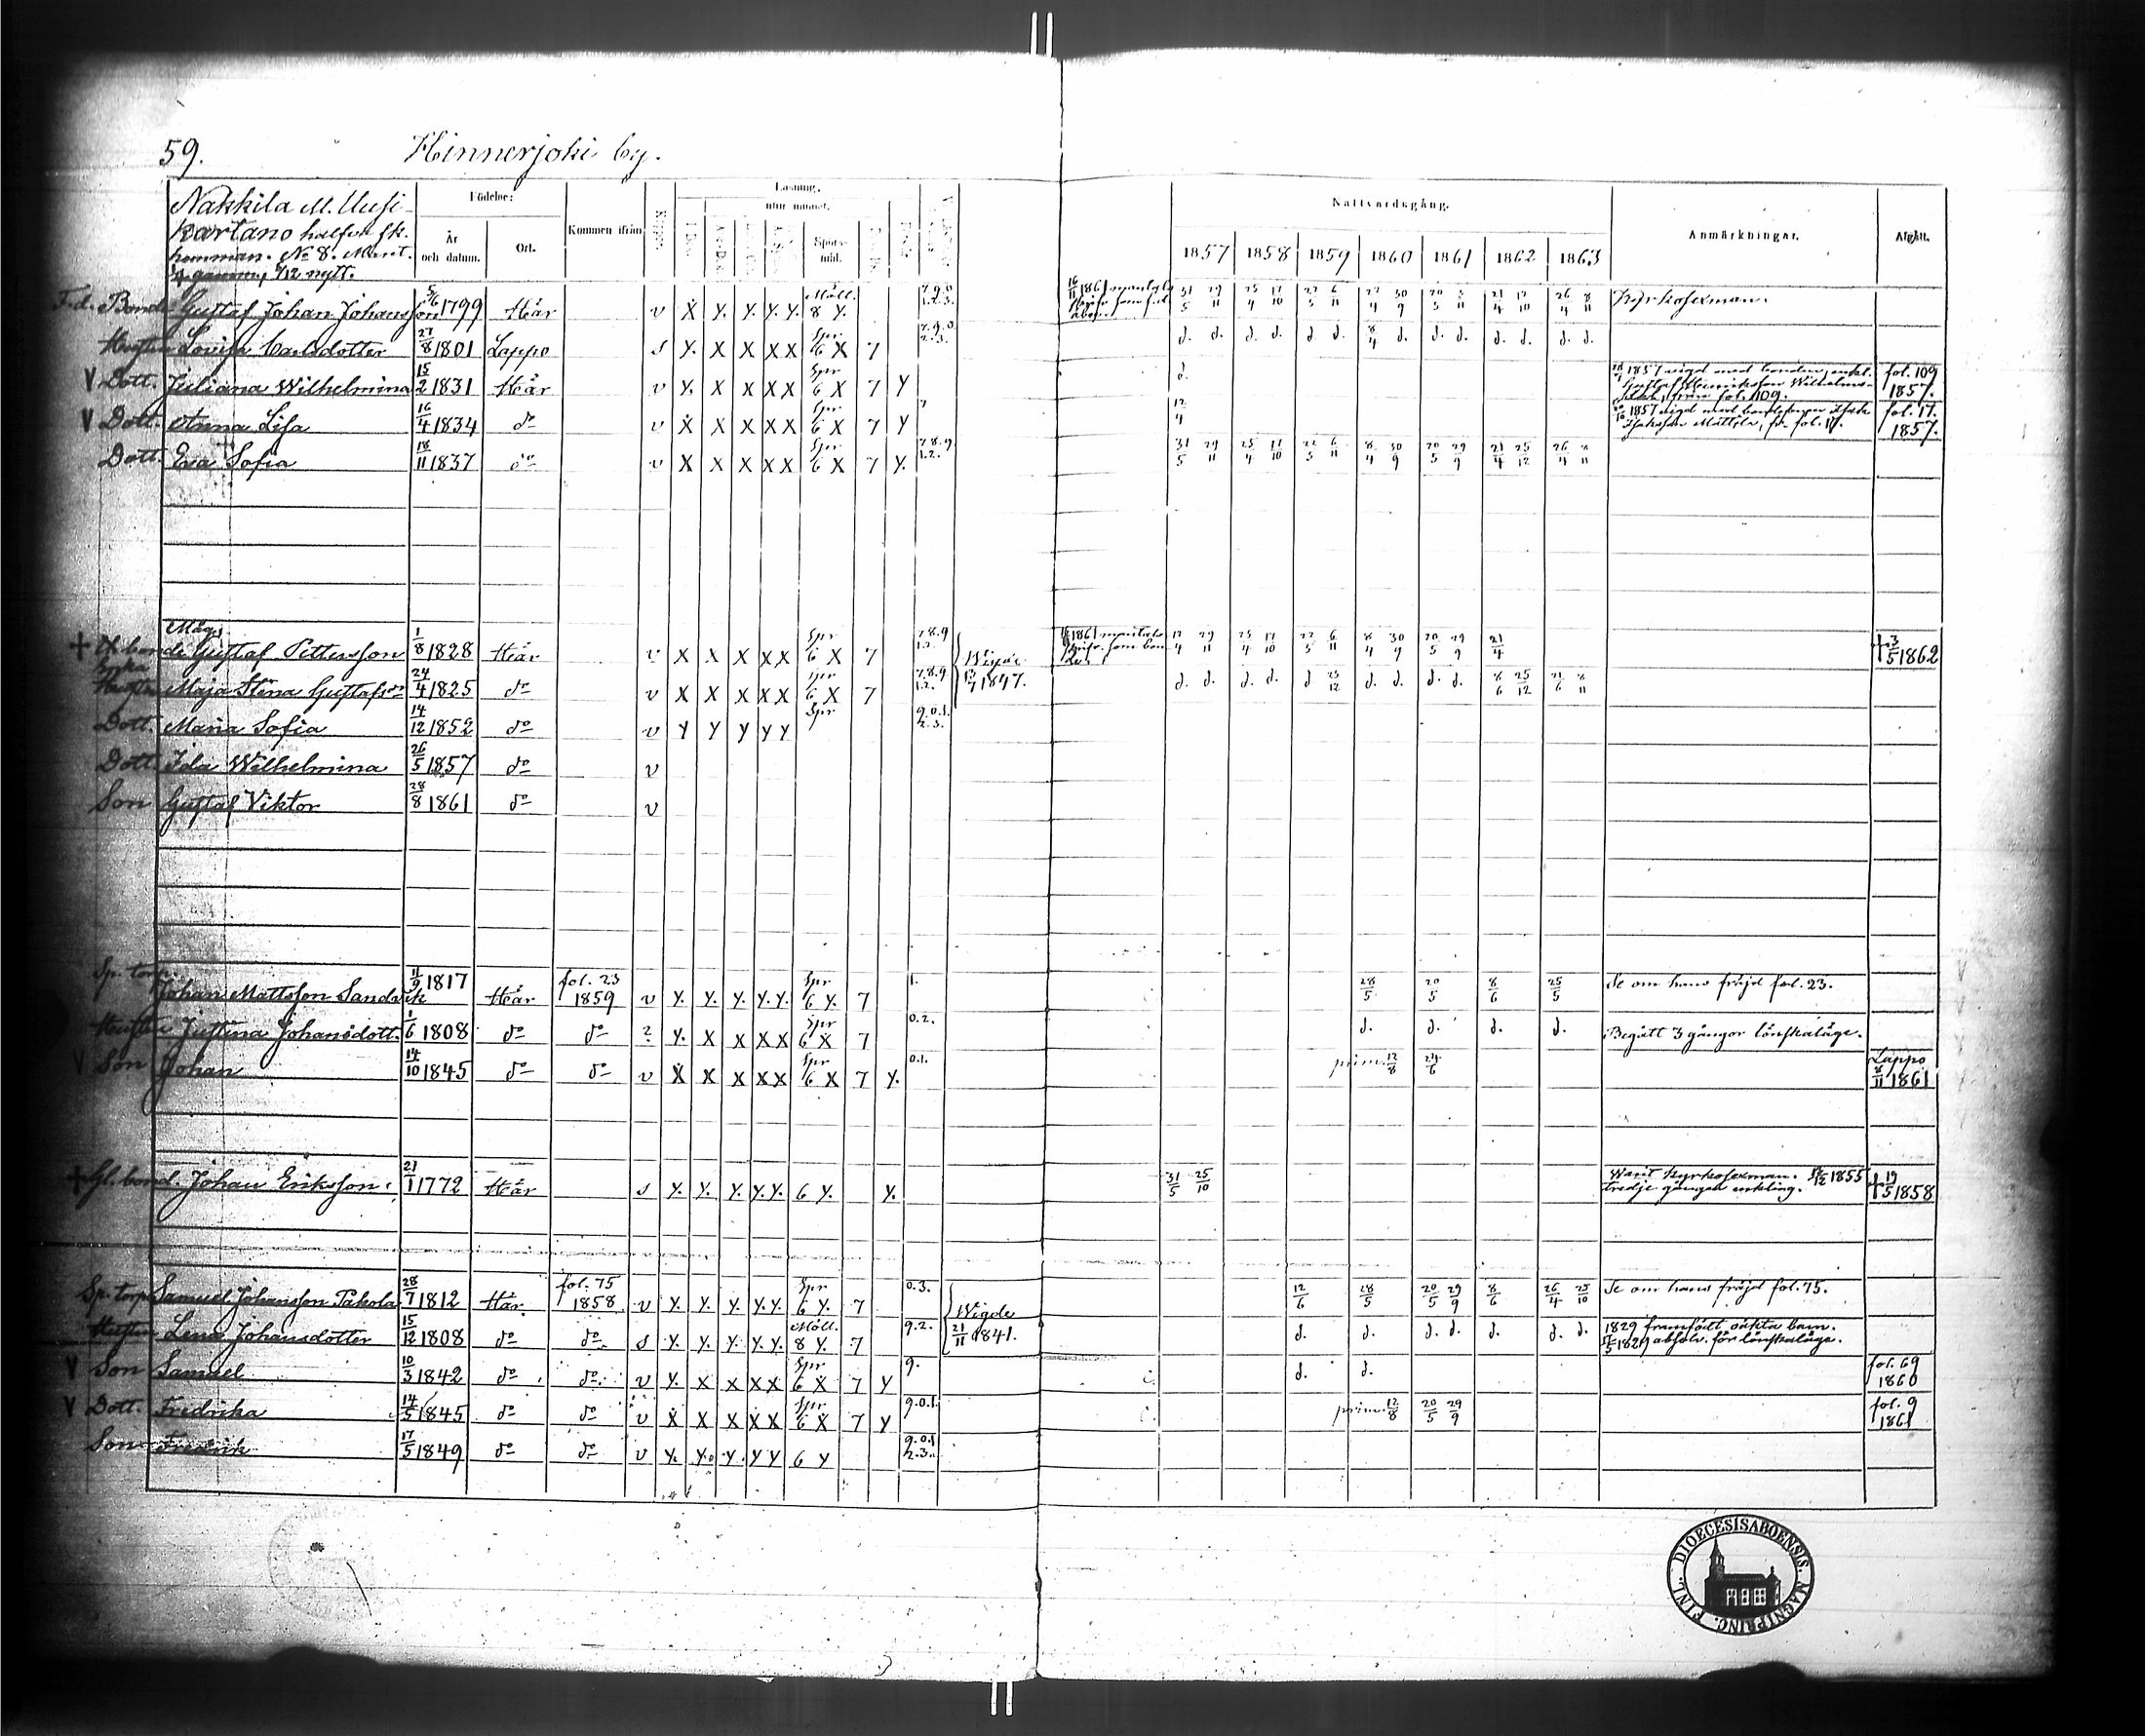 59. Hinnerjoki by.
Nakkila M. Uusi-
kartano halfva sk.
hemman. No 8. Mant.
1/4 gammu, 7/12 nytt.
Födelse:
År och datum. Ort.
Kommen ifrån
Läsning.
utur minnet.
Spörs-mål.
Nattvardsgång.
1857 1858 1859 1860 1861 1862 1863
Anmärkningar.
Afgått.
F.d. Bond. Gustaf Johan Johansson 5/6 1799 Här v X Y. Y. Y. Y. Möll. 8 Y. 31/5 29/11 25/4 17/10 22/5 6/11 8/4 30/9 21/4 26/4 8/11 Kyrkosexman.
Hustru Lovisa Carlsdotter 27/8 1801 Lappo s Y. X X X X Spr 6 X 7 d. d. d. d. d. d. 8/4 d. d. d. d. d. d. d.
V Dott. Juliana Wilhelmina 15/2 1831 Här v Y. X X X X Spr 6 X 7 Y d. 1857 vigd med bonden, enkl. fol. 109
Gustaf Henriksson från fol. 109. 1857.
V Dott. Anna Lisa 16/4 1834 do v X X X X X Spr 6 X 7 Y 12/4 1857 vigd med fol. 17.
fr. fol. 17. 1857.
Dott. Eva Sofia 18/11 1837 do v X X X X X Spr 6 X 7 Y. 7.8.9. 1.2. 31/5 29/11 25/4 17/10 22/5 6/11 8/4 30/9 20/5 29/9 21/4 25/12 26/4 8/11
Mågs
+ bonde Gustaf Pettersson 1/8 1828 Här v X X X X X Spr 6 X 7 7.8.9 12/4 29/11 25/4 17/10 22/5 6/11 8/4 30/9 20/5 29/9 21/4 + 3/5 1862
Enka
Hustru Maja Stina Gustafsdr 24/4 1825 do v X X X X X Spr 6 X 7 7.8.9 1.2. 1847. d. d. d. d. d 25/12 d. d. d. d. 8/6 25/12 21/6 8/11
Dott. Maria Sofia 14/12 1852 do v Y Y Y Y Y Spr 9.0.1. 2.3.
Dott. Ida Wilhelmina 26/5 1857 do v
Son Gustaf Viktor 28/8 1861 do v
Sp. torp.
Johan Mattsson Sandvik 11/9 1817 Här fol. 23 1859 v Y. Y. Y. Y. Y. Spr 6 Y. 7 1. 28/5 20/5 8/6 25/5 Se om hans fräjd fol. 23.
Hustru Justina Johansdott. 1/6 1808 do do ? Y. X X X X Spr 6 X 7 0.2. d. d. d. d. Begått 3 gångor lönskaläge.
V Son Johan 14/10 1845 do do v X X X X X Spr 6 X 7 Y. 0.1. prim. 12/8 24/6 Lappo
8/11 1861
+ Gl. bond. Johan Eriksson 21/1 1772 Här s Y. Y. Y. Y. Y. 6 Y. Y. 31/5 25/10 Varit Kyrkosexman. 1855
tredje gången enkling. + 19/5 1858
Sp. torp. Samuel Johansson Takola 28/7 1812 Här fol. 75 1858 v Y. Y. Y. Y. Y. Spr 6 Y. 7 0.3. 12/6 28/5 20/5 29/9 8/6 26/4 25/10 Se om hans fräjd fol. 75.
Hustru Lena Johansdotter 15/12 1808 do do s Y. Y. Y. Y. Y. Möll. 8 Y. 7 9.2. Wigde 21/11 1841. d. d. d. d. d. d. d. 1829 framfödt oäkta barn.
absolv. för lönskaläge.
V Son Samuel 10/3 1842 do do v Y. X X X X Spr 6 X 7 Y 9. d. d. fol. 69
1860
V Dott. Fredrika 14/5 1845 do do v X X X X X Spr 6 X 7 Y 9.0.1. prim. 12/8 20/5 29/9 fol. 9
1861
Son Fredrik 17/5 1849 do do v Y. Y. Y. Y Y 6 Y 9.0.1 2.3.
DIOECESIS ABOENSIS. MAGNI PRINC. FINL.